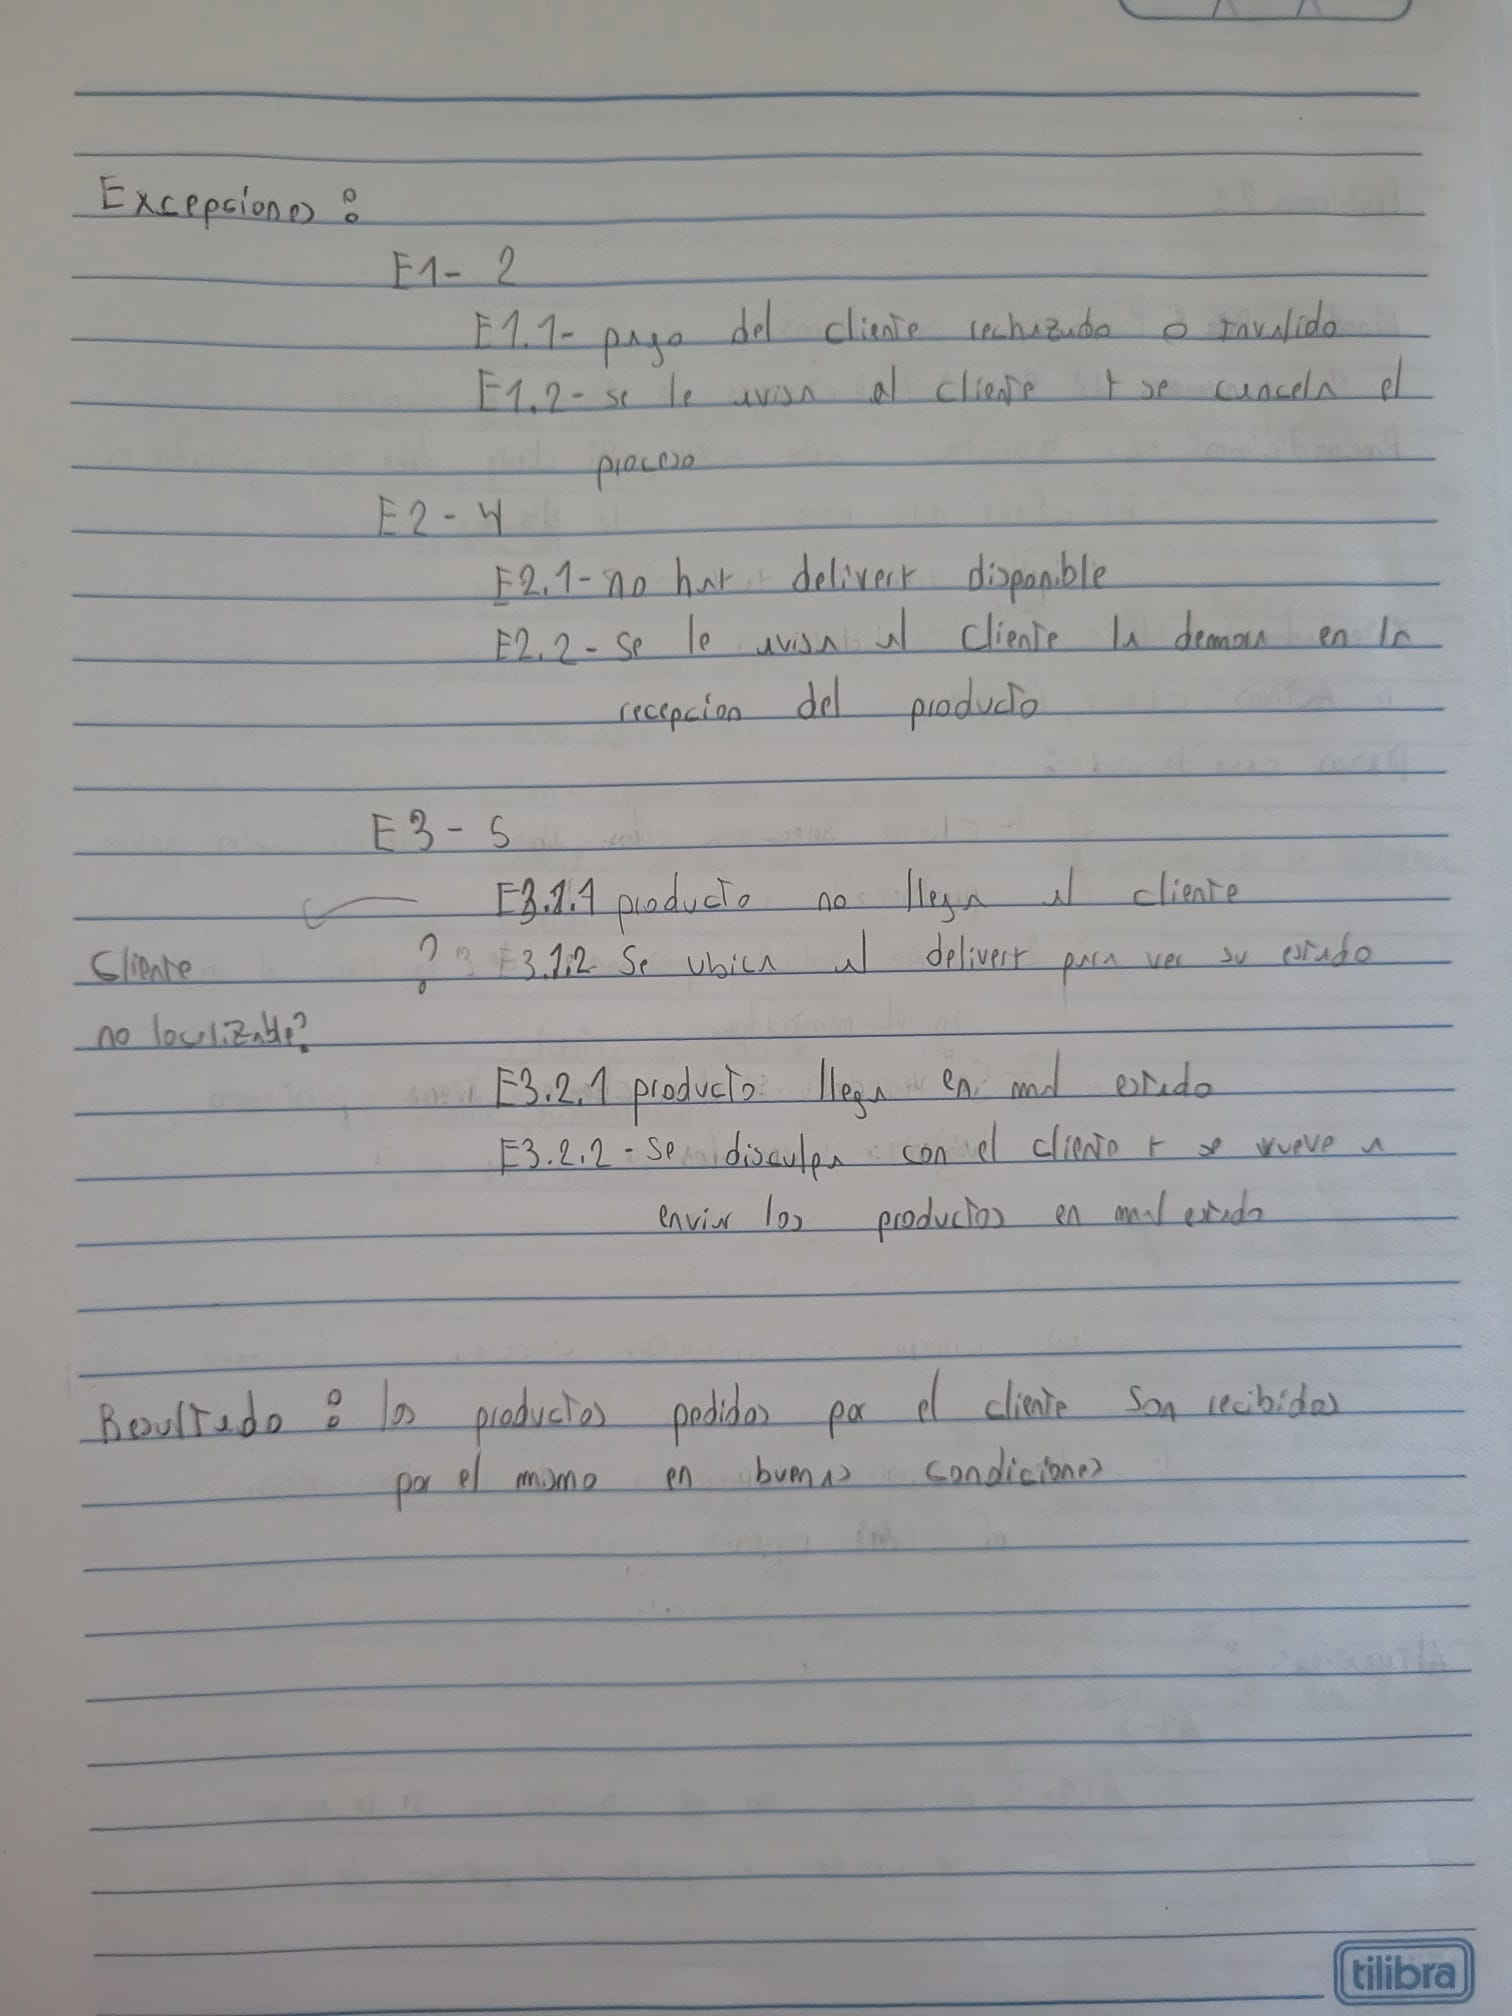 Excepciones:
E1- 2
E1.1- pago del cliente rechazado o invalido
E1.2- se le avisa al cliente y se cancela el
proceso
E2- 4
E2.1- no hay delivery disponible
E2.2- se le avisa al cliente la demora en la
recepcion del producto
E3- 5
E3.1.1 producto no llega al cliente
Cliente ? E3.1.2 Se ubica al delivery para ver su estado
no localizable?
E3.2.1 producto llega en mal estado
E3.2.2- se disculpa con el cliente y se vueve a
enviar los productos en mal estado
Resultado: los productos pedidos por el cliente son recibidos
por el mismo en buenas condiciones
tilibra